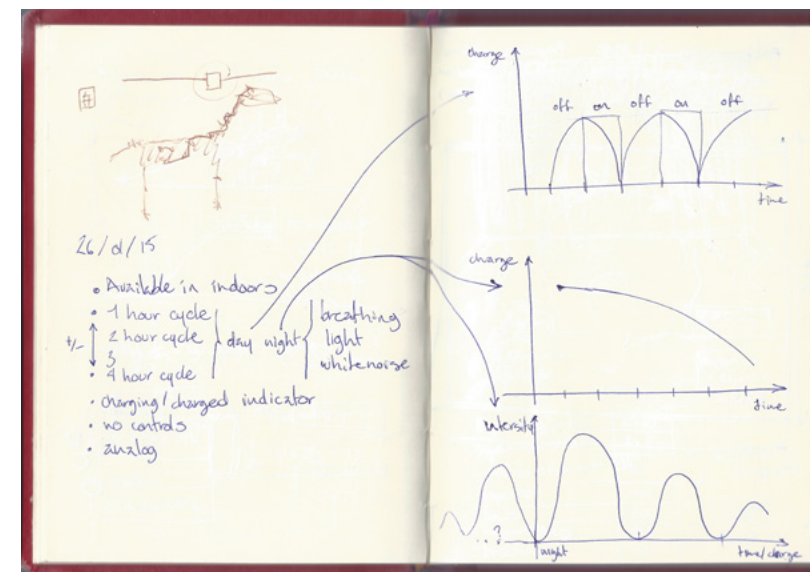 26/01/15
• Available in indoors
• 1 hour cycle
+/- 2 hour cycle
3
• 4 hour cycle
day night
breathing
light
whitenoise
• charging/charged indicator
• no controls
• analog
charge
off on off on off
time
charge
time
intensity
...?
night
time/charge